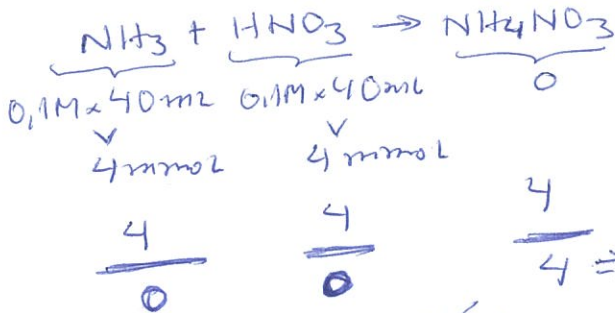 NH3 + HNO3 → NH4NO3
0,1M x 40 mL 0,1M x 40 mL 0
4 mmol 4 mmol
4 4 4
0 0 4 =